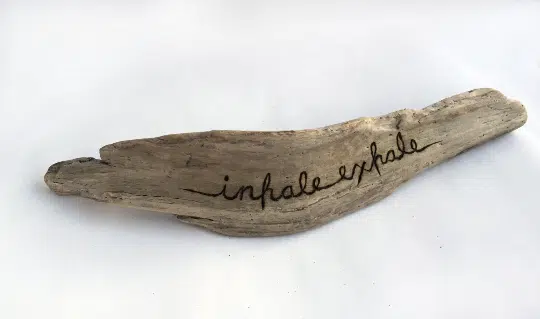 inhale exhale